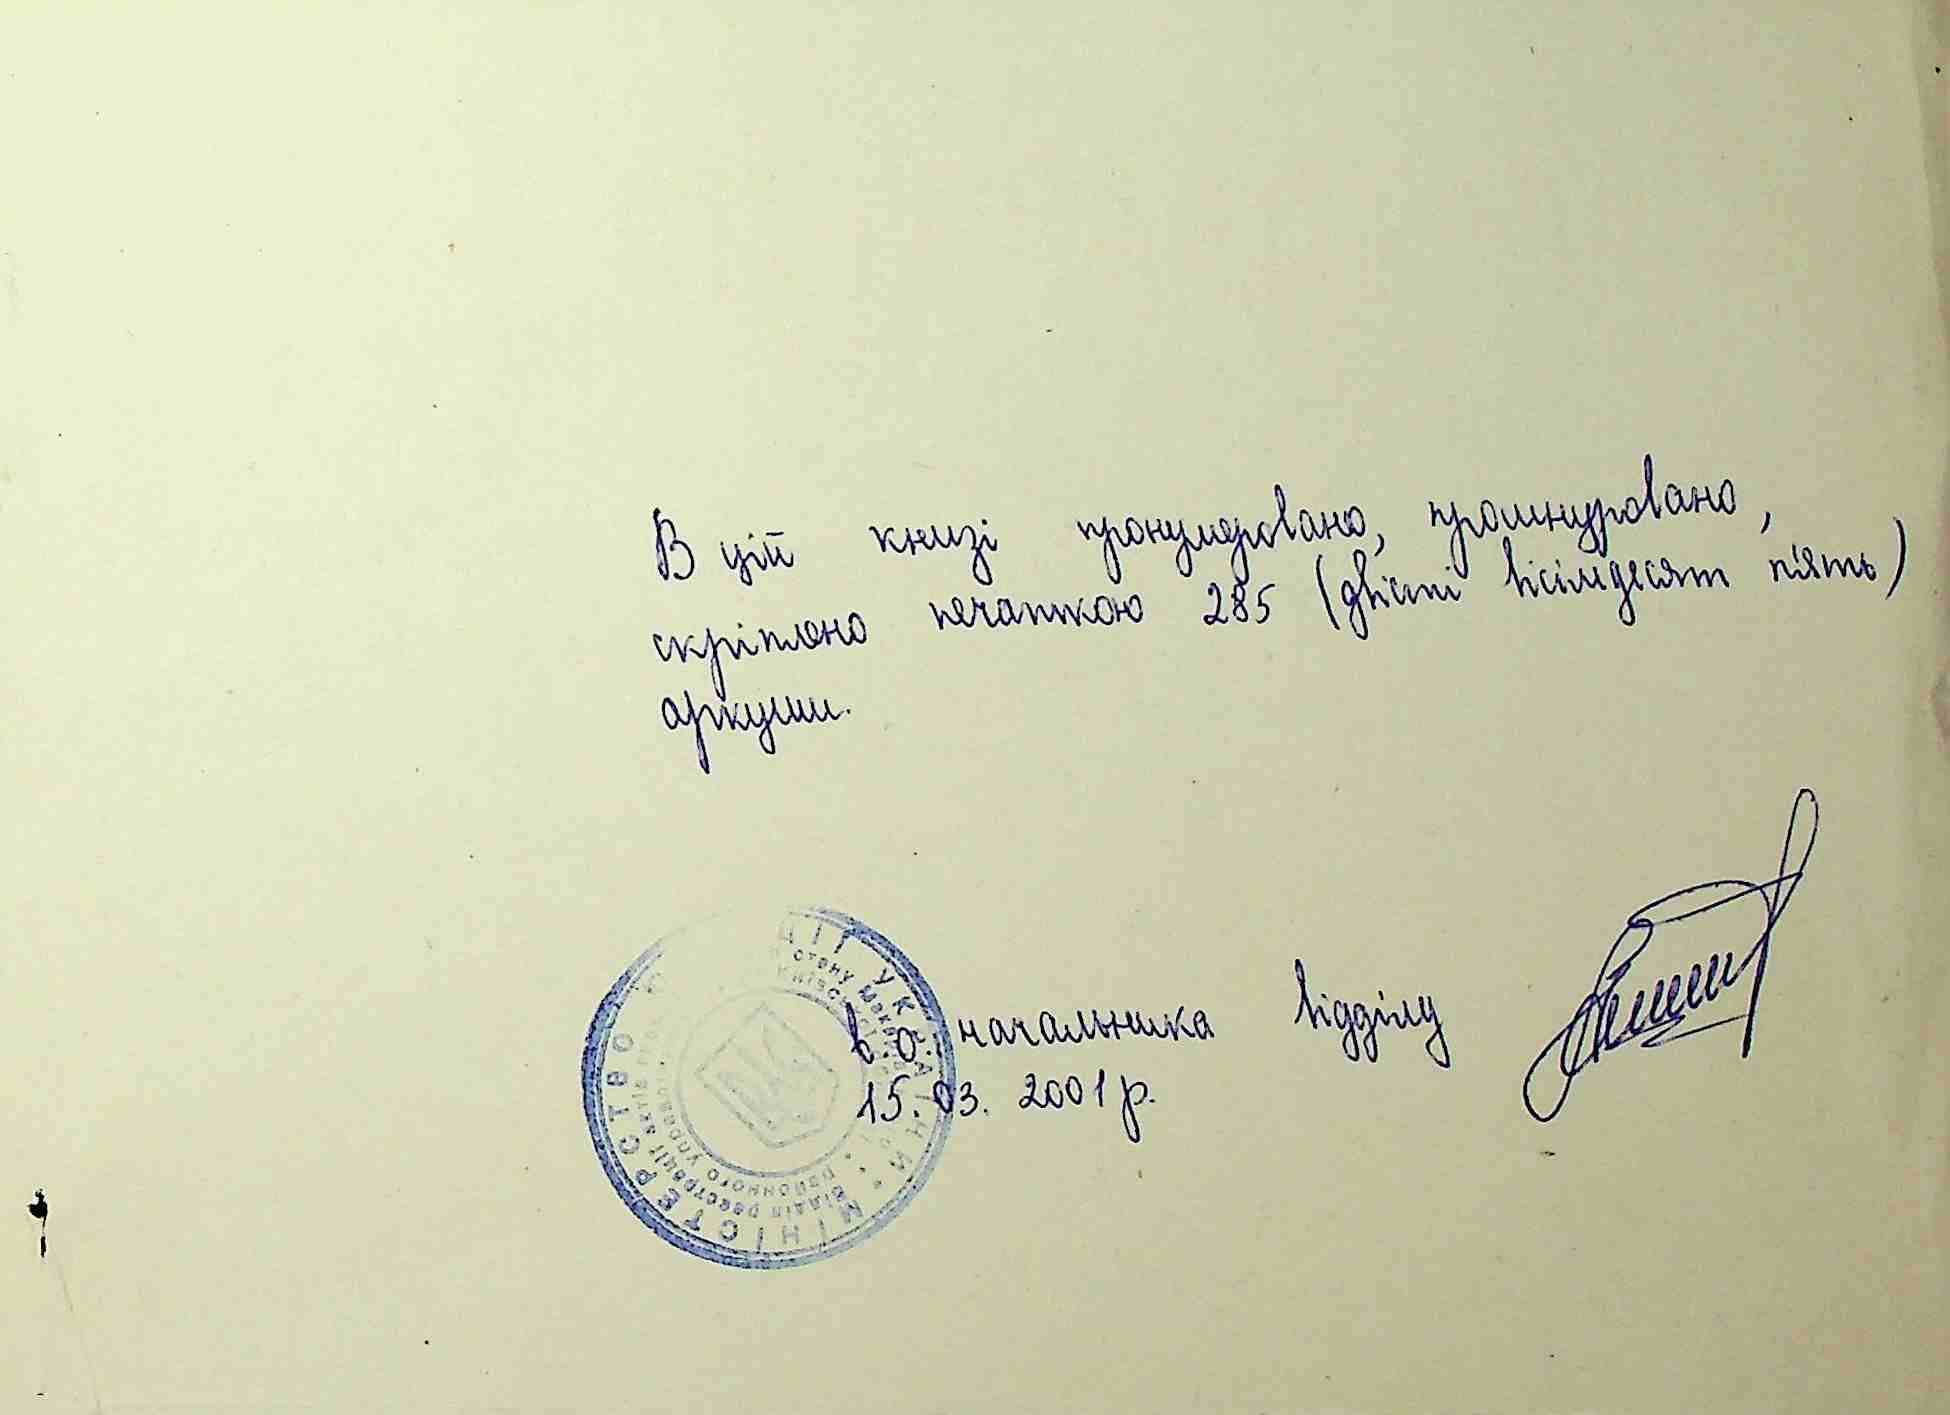 В цій книзі пронумеровано, прошнуровано,
скріплено печаткою 285 (двісті вісімдесят п'ять)
аркуши.
в.о. начальника відділу
15.03.2001 р.
МІНІСТЕРСТВО ЮСТИЦІЇ УКРАЇНИ
Відділ реєстрації актів стану
районного